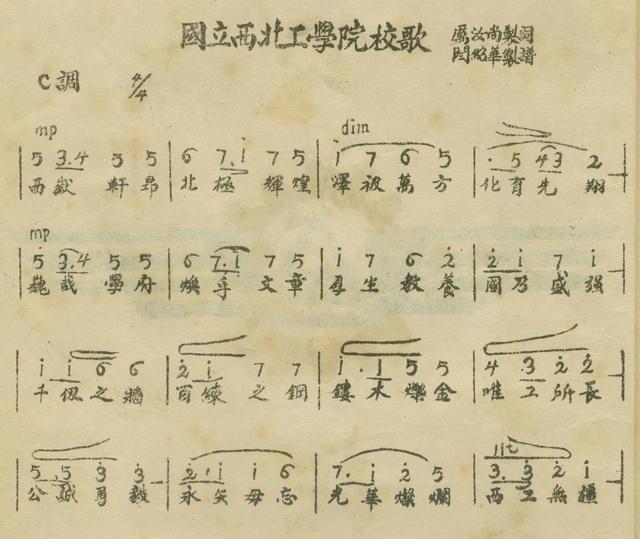 國立西北工學院校歌
厲汝尚製詞
閆紹華製譜
C調 4/4
mp dim
5 3.4 5 5 | 6 7.i 7 5 | i 7 6 5 | . 5 4 3 2
西嶽軒昂 北極輝煌 澤被萬方 化育先翔
mp
5 3.4 5 5 | 6 7.i 7 5 | i 7 6 2 | 2 i 7 i
巍哉學府 煥乎文章 厚生教養 國乃盛强
i i 6 6 | 2 i 7 7 | i . i 5 5 | 4 .3 2 2
千仭之牆 百練之鋼 鏤木爍金 唯工所長
lit
5 .5 3 3 | 2 . i i 6 | 7. i 2 5 | 3. 3 2 i
公誠勇毅 永矢毋忘 光華燦爛 西工無疆